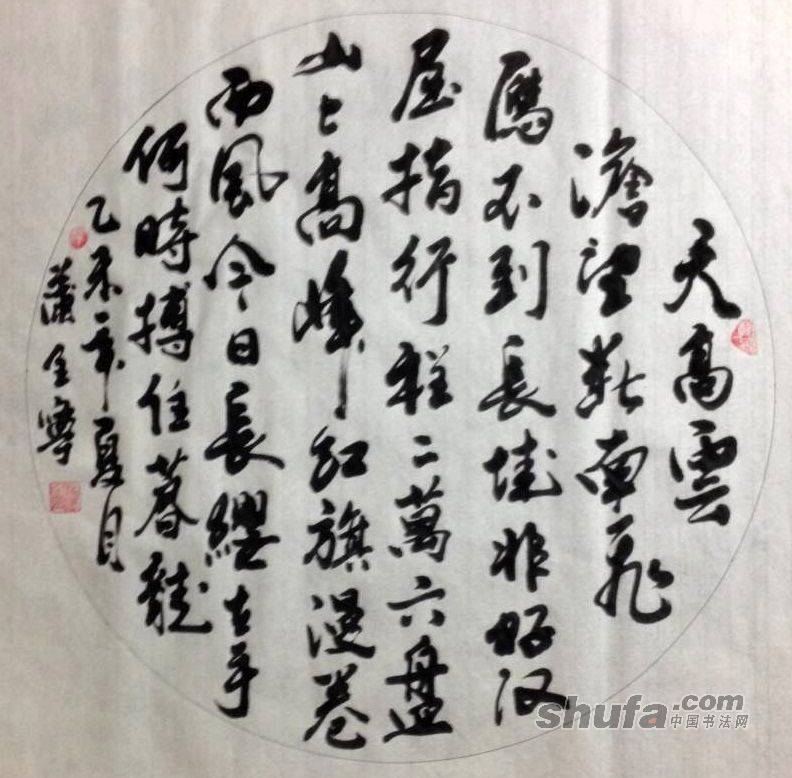 天高雲
澹望断南飛
鴈不到長城非好汉
屈指行程二萬六盘
山上高峰红旗漫卷
西風今日長纓在手
何時搏住蒼龍
乙未年夏月
蕭全寧
shufa.com
中国书法网